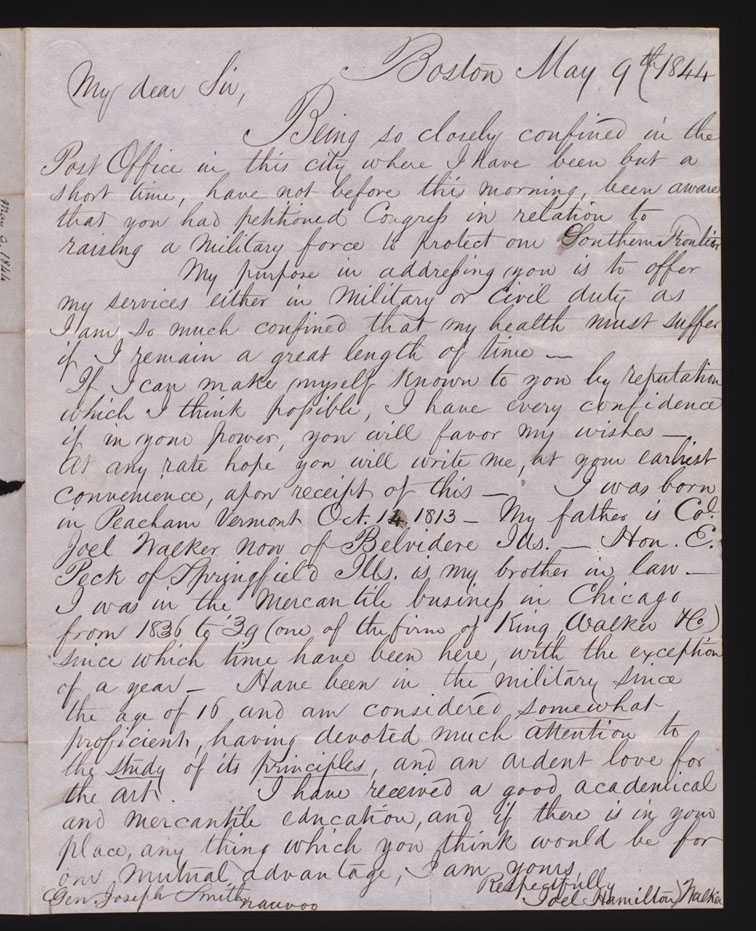 Boston May 9th 1844
My dear Sir,
Being so closely confined in the
Post Office in this city where I have been but a
short time, have not before this morning, been aware
that you had petitioned Congress in relation to
raising a Military force to protect our Southern Frontier
My purpose in addressing you is to offer
my services either in Military or Civil duty as
I am so much confined that my health must suffer
if I remain a great length of time —
If I can make myself known to you by reputation
which I think possible, I have every confidence
if in your power, you will favor my wishes —
At any rate hope you will write me, at your earliest
convenience, upon receipt of this — I was born
in Peacham Vermont Oct. 14, 1813 — My father is Col.
Joel Walker now of Belvidere Ills. — Hon. E.
Peck of Springfield Ills. is my brother in law —
I was in the Mercantile business in Chicago
from 1836 to '39 (one of the firm of King, Walker & Co)
since which time have been here, with the exception
of a year — Have been in the military since
the age of 16 and am considered somewhat
proficient, having devoted much attention to
the study of its principles, and an ardent love for
the art. I have received a good academical
and mercantile education, and if there is in your
place, any thing which you think would be for
our mutual advantage, I am yours
Respectfully
Gen. Joseph Smith Joel Hamilton Walker
Nauvoo
May 9 1844